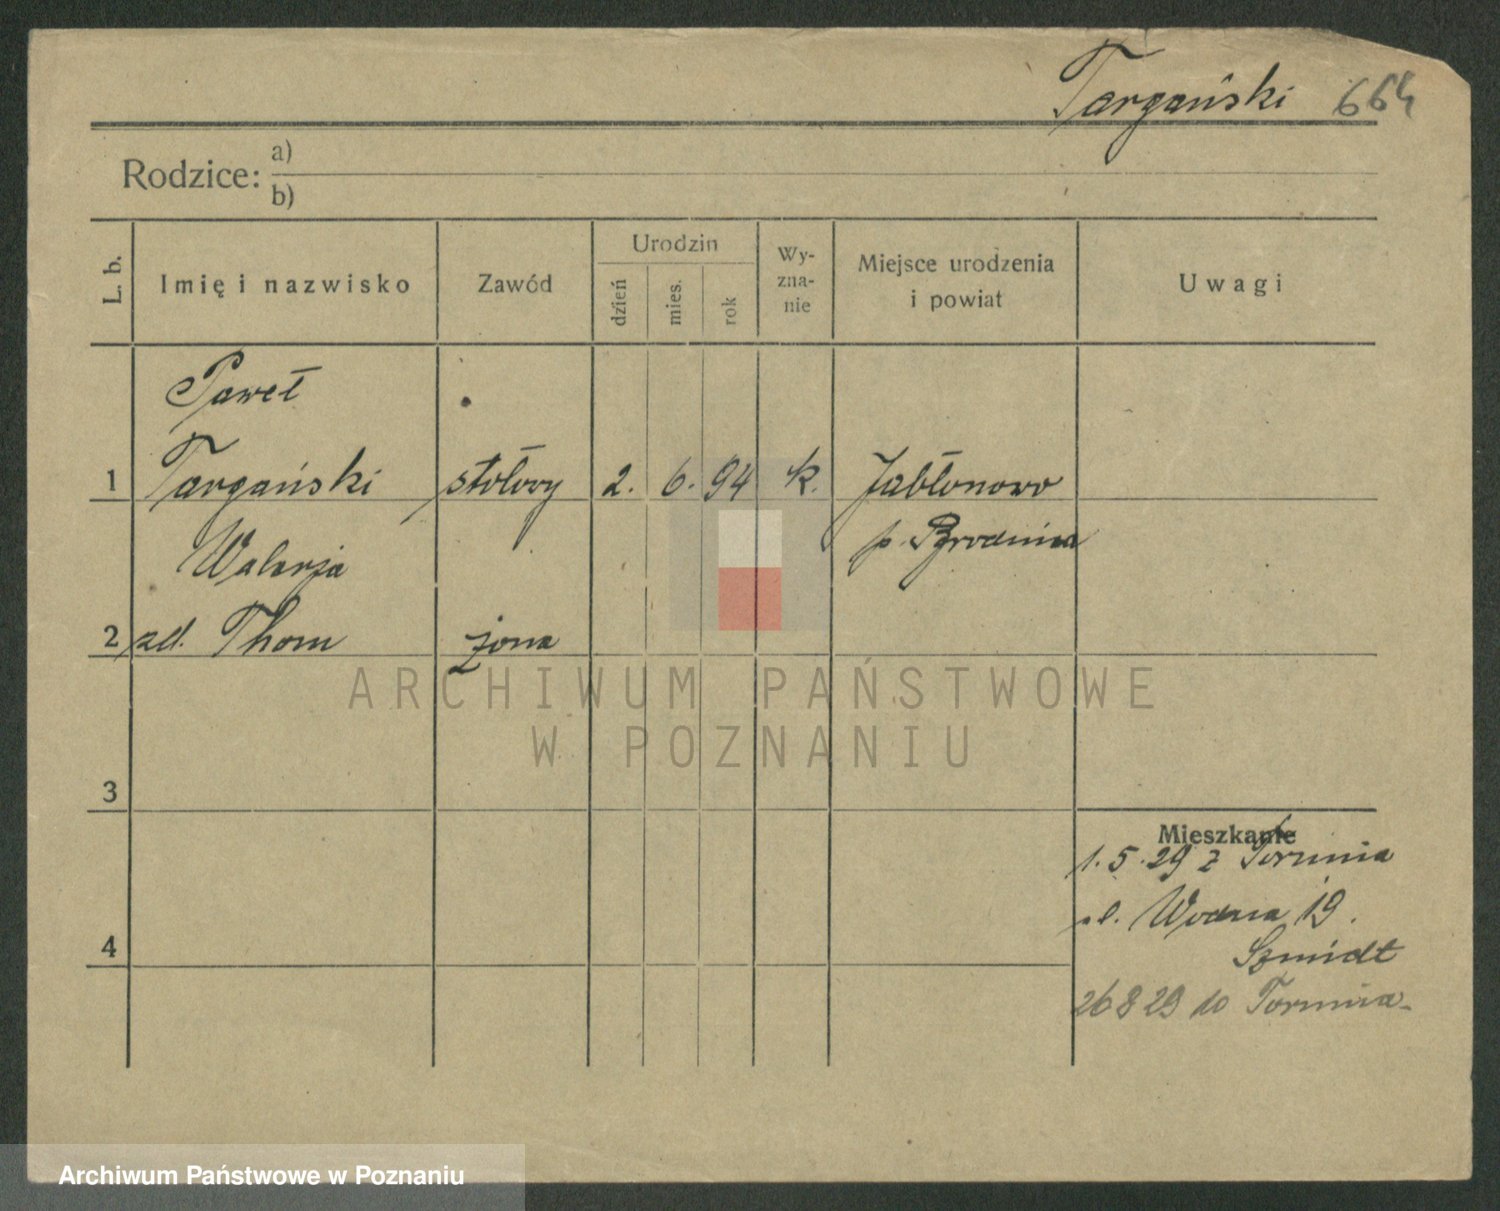 Targański 664
Rodzice: a)
b)
L. b. Imię i nazwisko Zawód Urodzin dzień mies. rok Wy-zna-nie Miejsce urodzenia i powiat Uwagi
Paweł
1 Targański stołowy 2. 6. 94 k. Jabłonowo
p. Brodnica
Walerja
2 zd. Thom żona
ARCHIWUM PAŃSTWOWE
W POZNANIU
3
Mieszkanie
1.5.29 z Torunia
ul. Wodna 19.
4
Szmidt
26 8 29 do Torunia
Archiwum Państwowe w Poznaniu